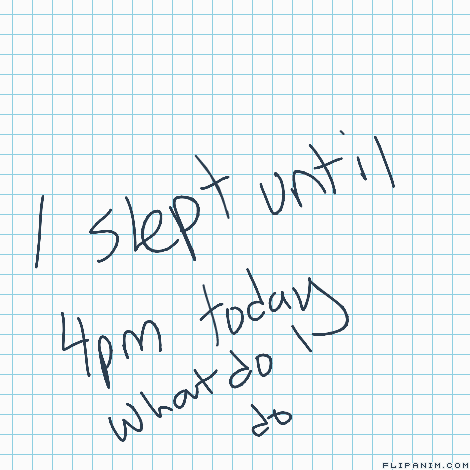 I slept until
4pm today
what do I
do
FLIPANIM.COM